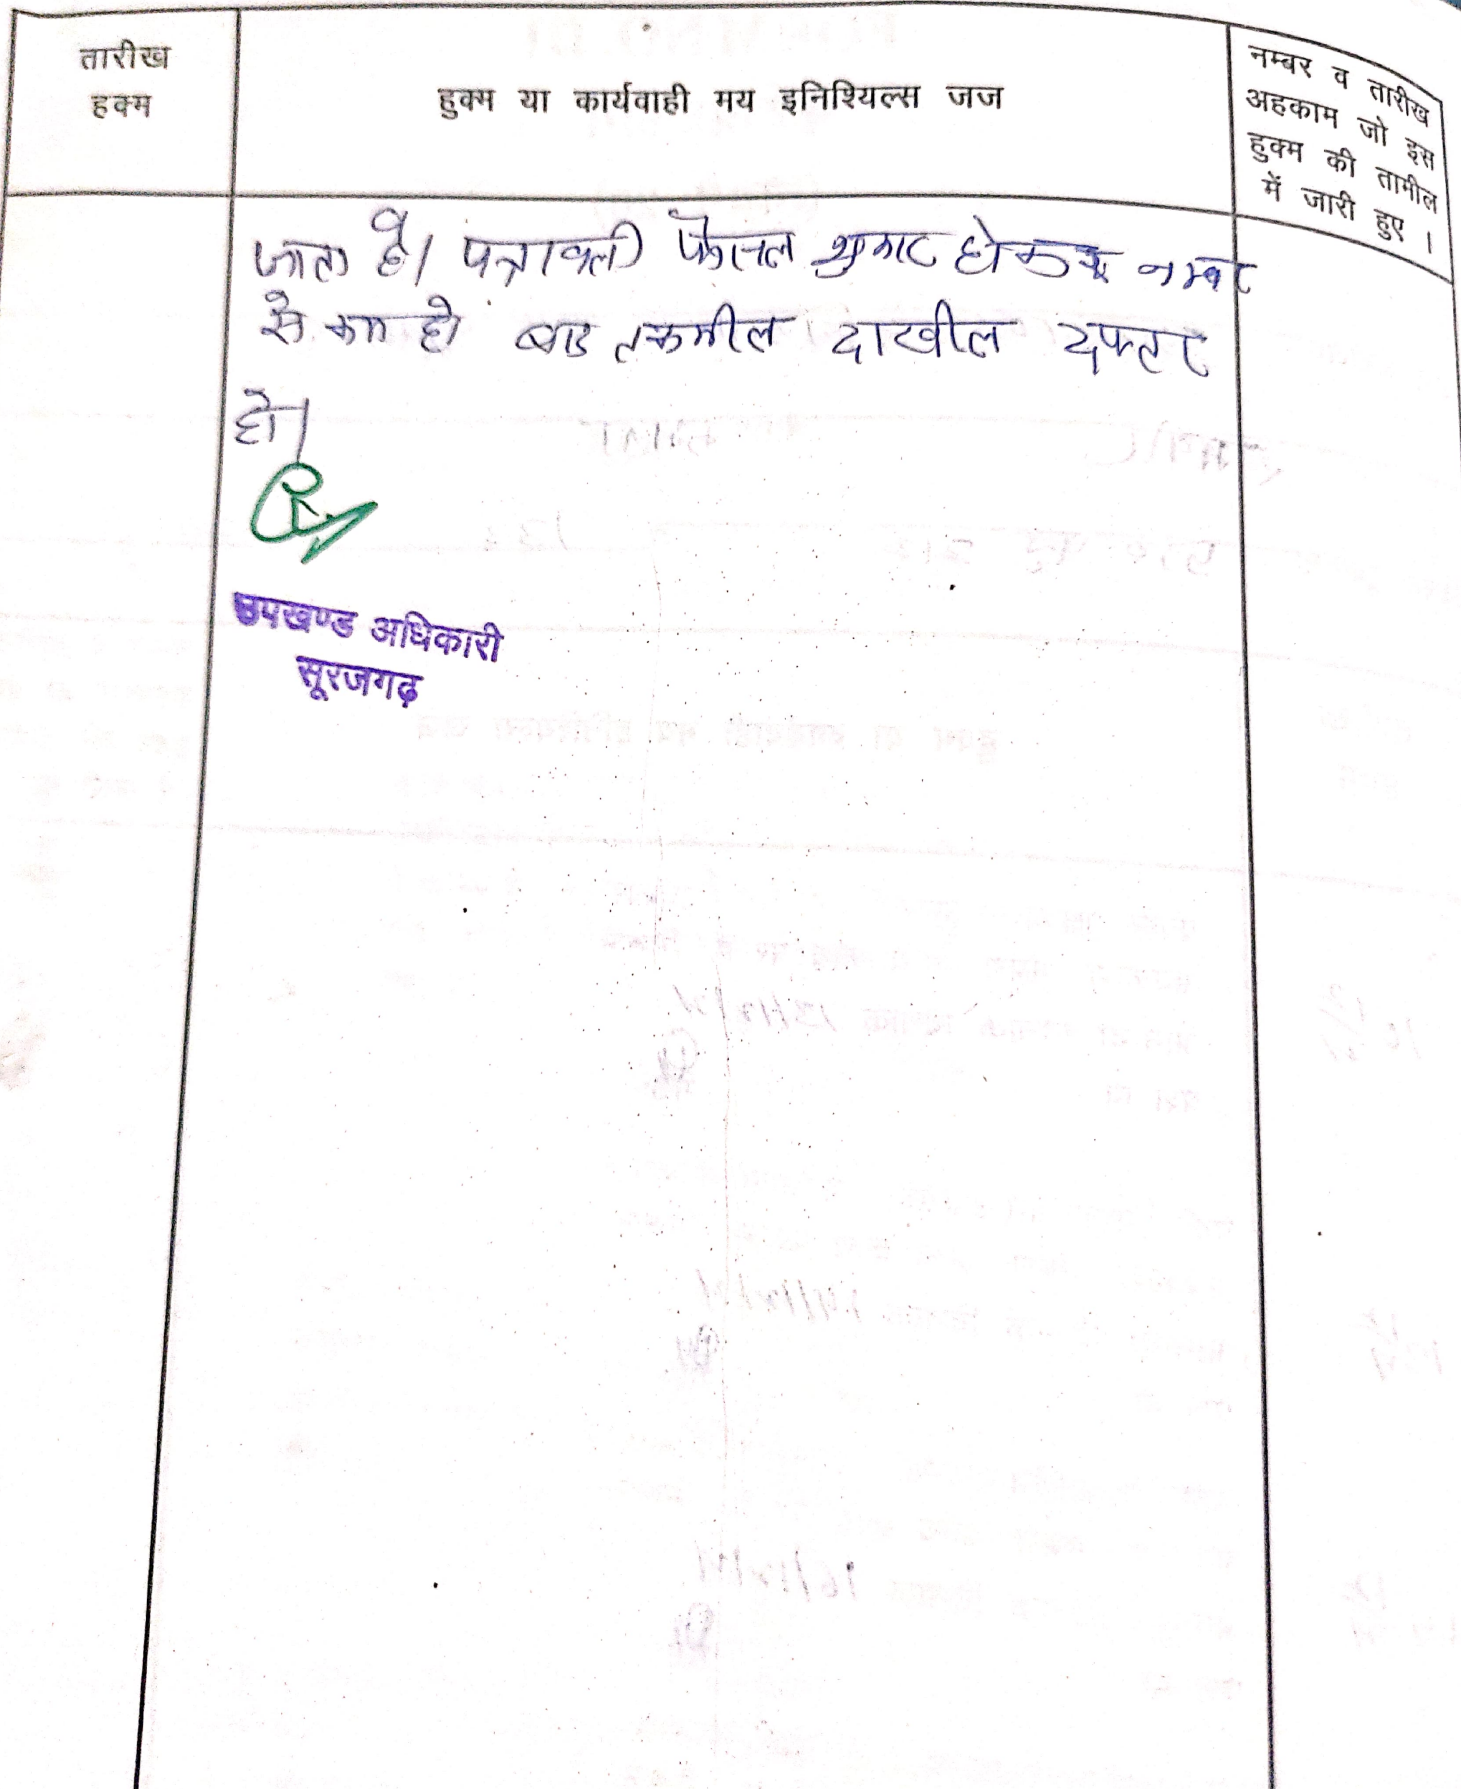 तारीख
हक्म
हुक्म या कार्यवाही मय इनिश्यिल्स जज
नम्बर व तारीख
अहकाम जो इस
हुक्म की तामील
में जारी हुए ।
जाता है। पत्रावली फैसल शुमार होकर नम्बर
से कम हो बाद तकमील दाखील दफ्तर
हो।
उपखण्ड अधिकारी
सूरजगढ़